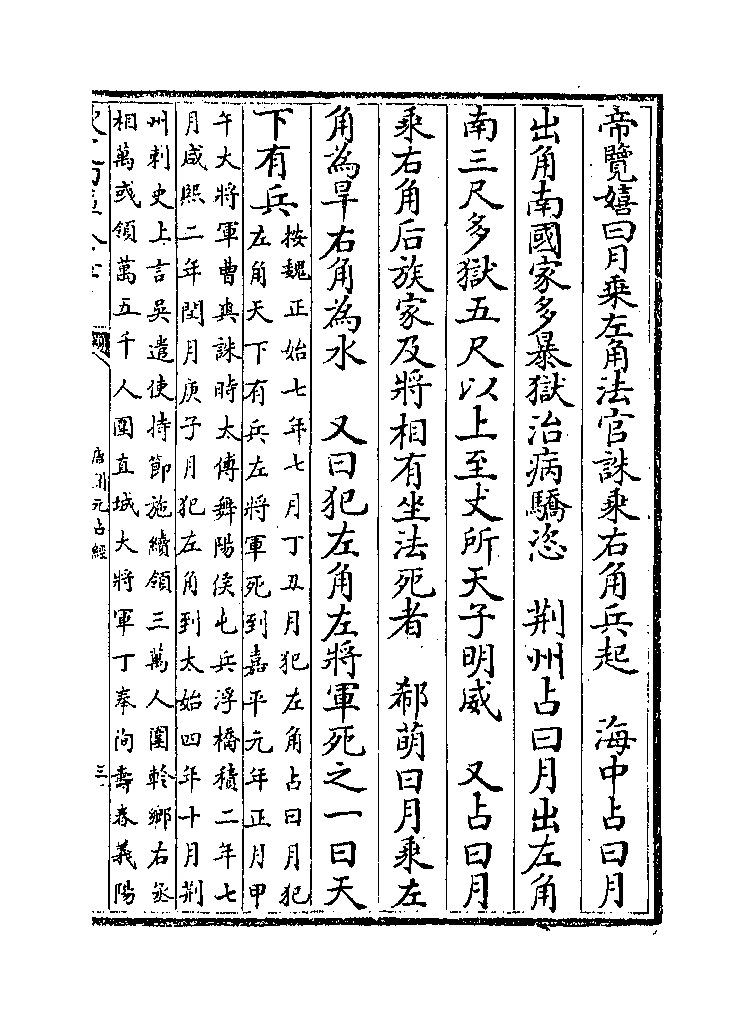 帝覽嬉曰月乘左角法官誅乘右角兵起　海中占曰月
出角南國家多暴獄治病驕恣　荆州占曰月出左角
南三尺多獄五尺以上至丈所天子明威　又占曰月
乘右角后族家及將相有坐法死者　郗萌曰月乘左
角為旱右角為水　又曰犯左角左將軍死之一曰天
下有兵
按魏正始七年七月丁丑月犯左角占曰月犯
左角天下有兵左將軍死到嘉平元年正月甲
午大將軍曹真誅時太傅舞陽侯屯兵浮橋積二年七
月咸熙二年閏月庚子月犯左角到太始四年十月荆
州刺史上言吳遣使持節施績領三萬人圍軨鄉右丞
相萬彧領萬五千人圍直城大將軍丁奉向壽春義陽
唐開元占經
三